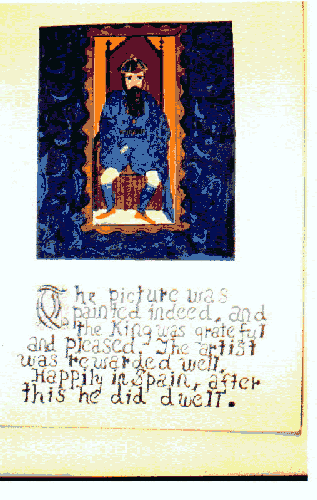 The picture was
painted indeed, and
the King was grateful
and pleased. The artist
was rewarded well.
Happily in Spain, after
this he did dwell.